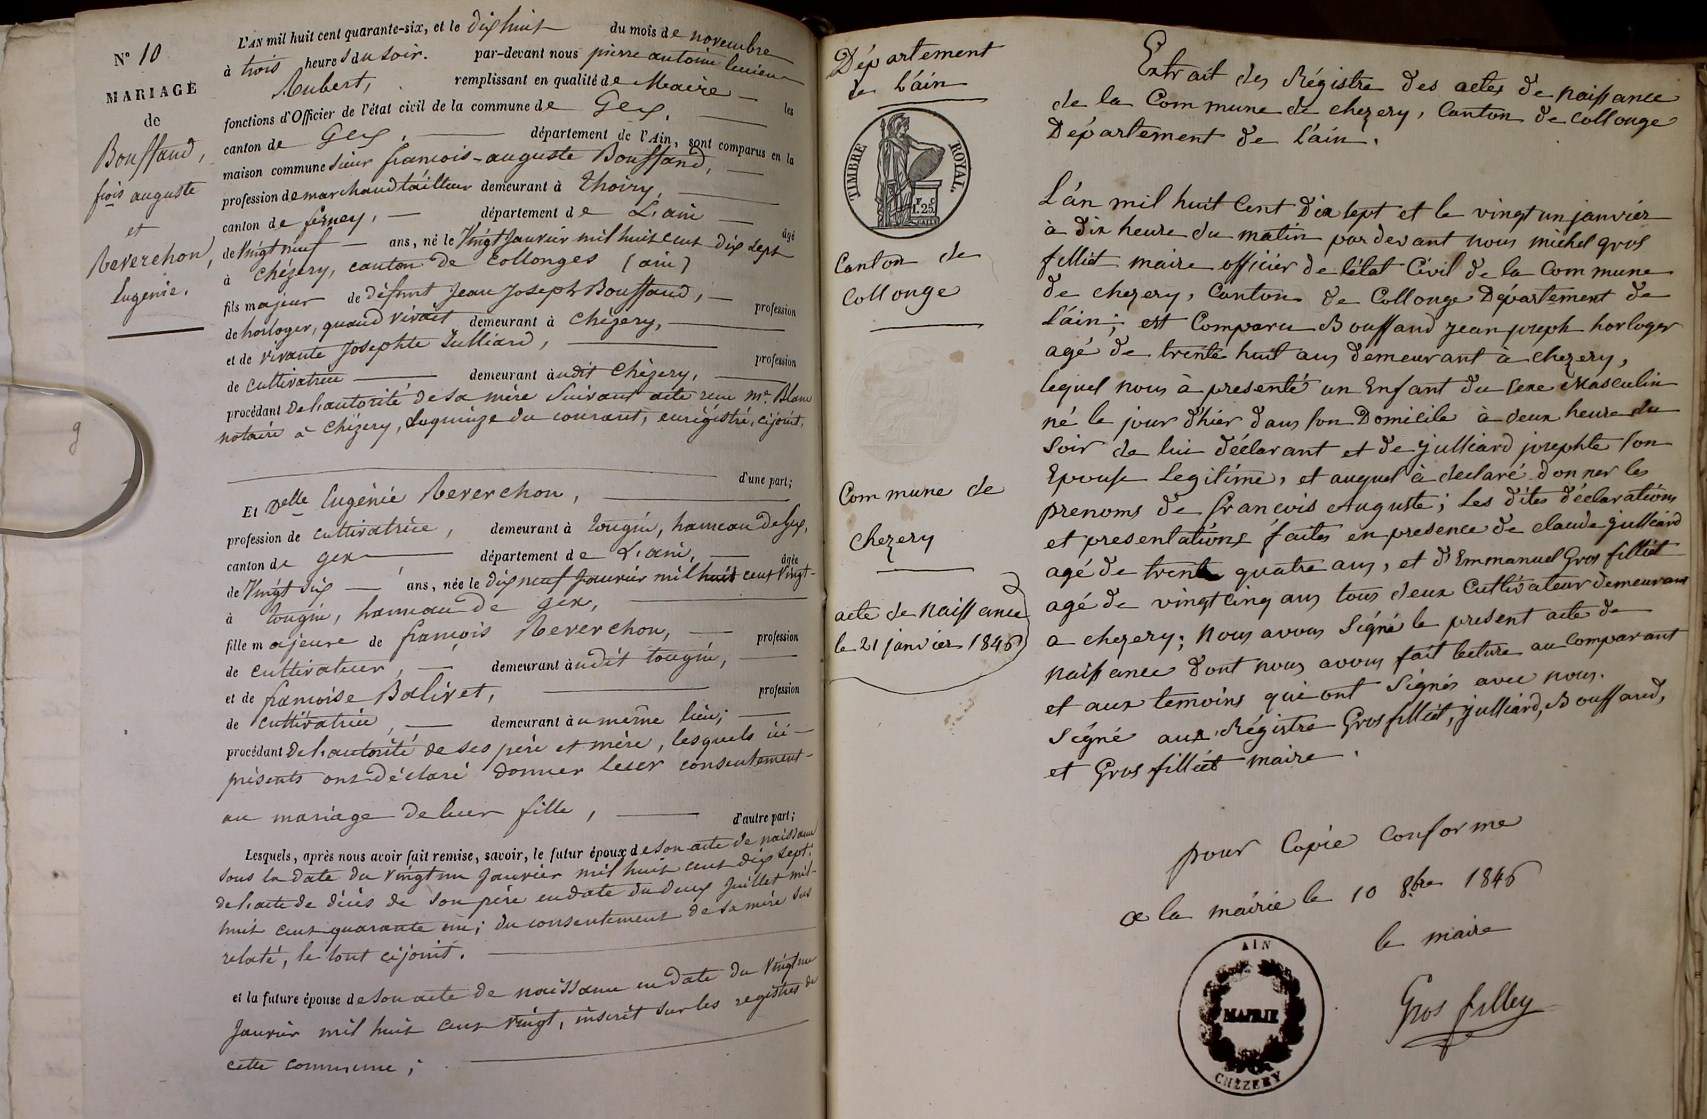 N° 10
MARIAGE
de
Bouffand,
fçois auguste
et
Reverchon,
Eugénie.
L'AN mil huit cent quarante-six, et le dix huit du mois de novembre
à trois heures du soir. par-devant nous pierre antoine lucien
Rubert, remplissant en qualité de Maire les
fonctions d'Officier de l'état civil de la commune de Gex,
canton de Gex, département de l'Ain, sont comparus en la
maison commune Sieur françois-auguste Bouffand,
profession de marchand tailleur demeurant à Thoiry,
canton de ferney, département de L'ain âgé
de Vingt neuf ans, né le Vingt Janvier mil huit cent dix sept
à Chézery, canton de Collonges (ain)
fils majeur de défunt Jean Joseph Bouffand, profession
de horloger, quand vivait demeurant à Chézery,
et de vivante Josephte Julliard, profession
de cultivatrice demeurant à udit Chézery,
procédant de l'autorité de sa mère suivant acte reçu Me Blanc
notaire à Chézery, le quinze du courant, enrégistré, cijoint.
d'une part;
Et Delle Eugénie Reverchon,
profession de cultivatrice, demeurant à tougin, hameau de Gex,
canton de gex département de L'ain, âgée
de Vingt six ans, née le dix neuf Janvier mil huit cent vingt
à tougin, hameau de gex,
fille majeure de françois Reverchon, profession
de cultivateur, demeurant à udit tougin,
et de françoise Balivet, profession
de cultivatrice, demeurant à u même lieu;
procédant de l'autorité de ses père et mère, lesquels ici
présents ont déclaré donner leur consentement
au mariage de leur fille, d'autre part;
Lesquels, après nous avoir fait remise, savoir, le futur époux de son acte de naissance
sous la date du vingt un Janvier mil huit cent dix sept;
de l'acte de décès de son père en date du deux Juillet mil
huit cent quarante un; du consentement de sa mère sus
relaté, le tout cijoint.
et la future épouse de son acte de naissance en date du Vingt un
Janvier mil huit cent vingt, inscrit sur les registres de
cette commune;
Département
de L'ain
TIMBRE ROYAL.
1.25
Canton de
Collonge
Commune de
chezery
acte de Naissance
le 21 janvier 1846
Extrait des Régistre des actes de naissance
de la Commune de chezery, Canton de collonge
Département de L'ain.
L'an mil huit Cent Dix sept et le vingt un janvier
à dix heure du matin par devant nous michel gros
filliét maire officier de l'état Civil de la Commune
de chezery, Canton de Collonge Département de
L'ain; est Comparu Bouffand jean joseph horloger
agé de trente huit ans demeurant à chezery,
lequel nous à presenté un Enfant du sexe Masculin
né le jour d'hier dans son Domicile à deux heure du
soir de lui déclarant et de julliard josephte son
Epouse Legitime, et auquel à declaré donner les
prenoms de françois Auguste; Les dites déclarations
et presentations faites en presence de claude julliard
agé de trente quatre ans, et d'Emmanuel Gros filliét
agé de vingt cinq ans tous deux Cultivateur demeurans
a chezery; Nous avons Signé le present acte de
Naissance dont nous avons fait lecture au Comparant
et aux temoins qui ont Signés avec nous.
Signé aux Régistre Gros filliét, julliard, Bouffand,
et Gros filliét maire.
pour Copie Conforme
a la mairie le 10 8bre 1846
le maire
Gros filley
AIN
MAIRIE
CHÉZERY